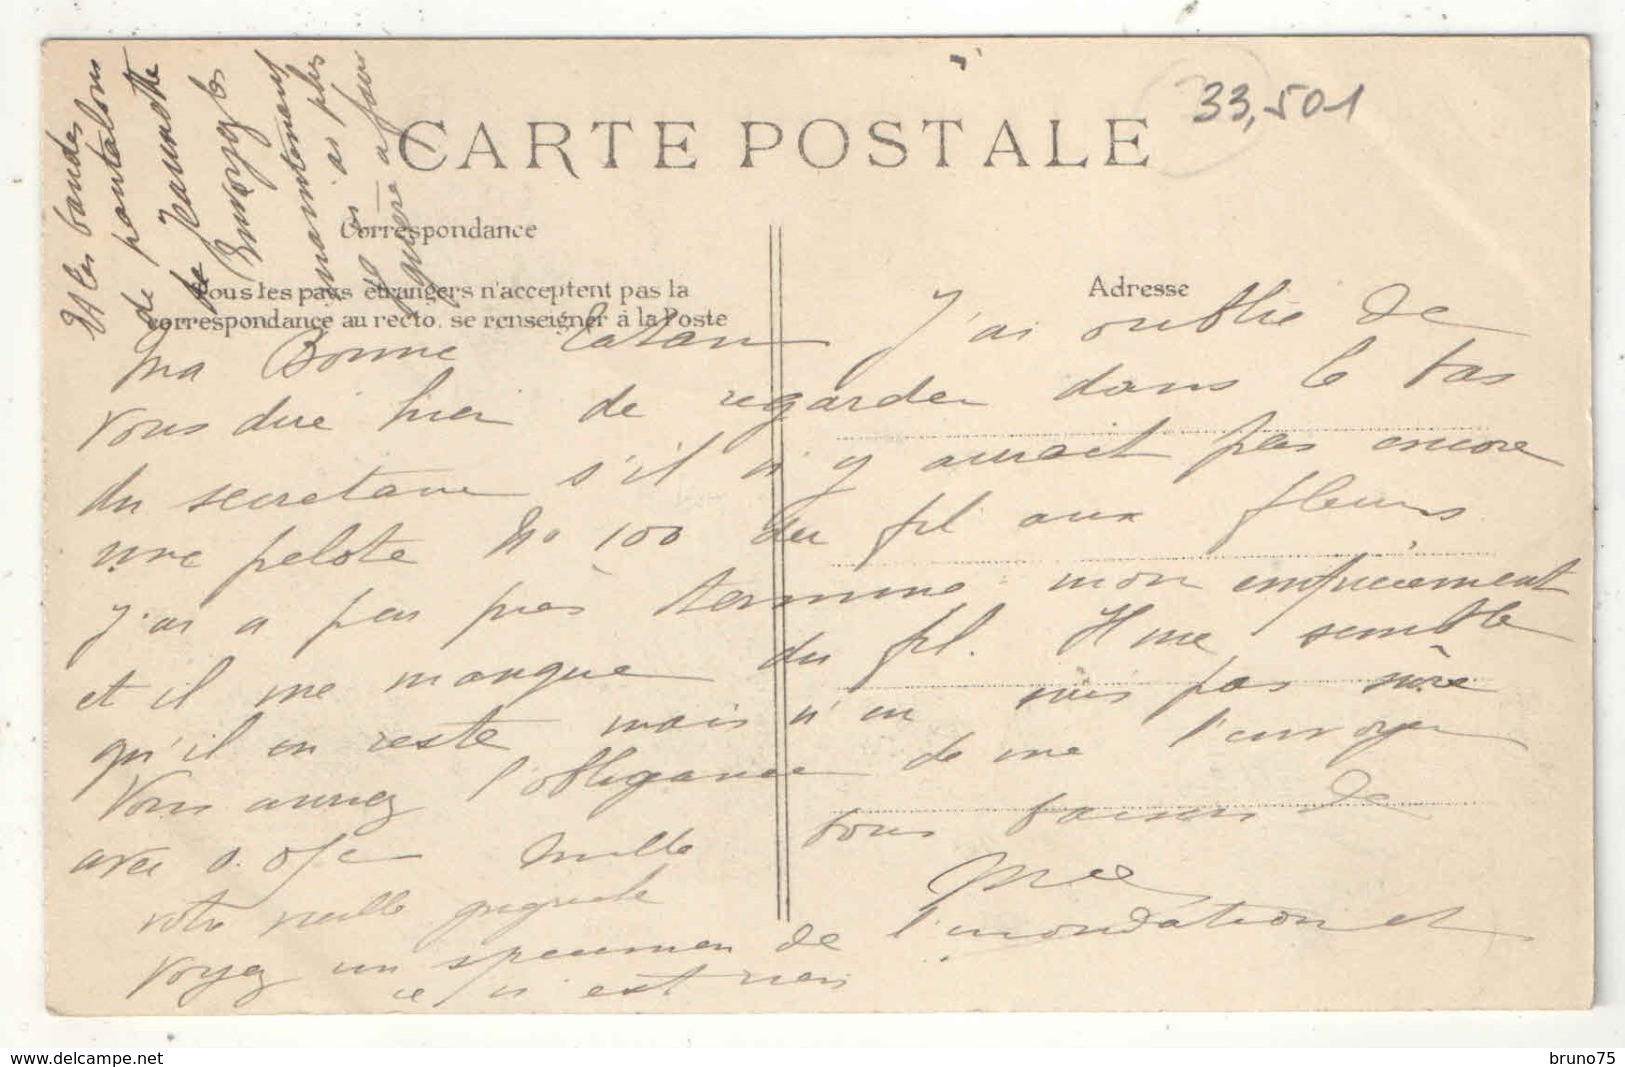 33,501
CARTE POSTALE
Correspondance
Tous les pays étrangers n'acceptent pas la
correspondance au recto, se renseigner à la Poste
Adresse
Et les bandes
de pantalons
de Jeannette
Envoyez les
maintenant
as plus
guère a faire
Ma Bonne J'ai oublié de
vous dire hier de regarder dans le bas
du secretaire s'il n'y aurait pas encore
une pelote No 100 du fil aux fleurs
J'ai a peu près terminé mon empiecement
et il me manque du fil. Il me semble
qu'il en reste mais n'en suis pas sûre
Vous aurez l'obligeance de me l'envoyer
avec mille bons baisers de
votre vieille
Voyez un specimen de l'inondation et
ce n'est rien
delcampe.net
bruno75